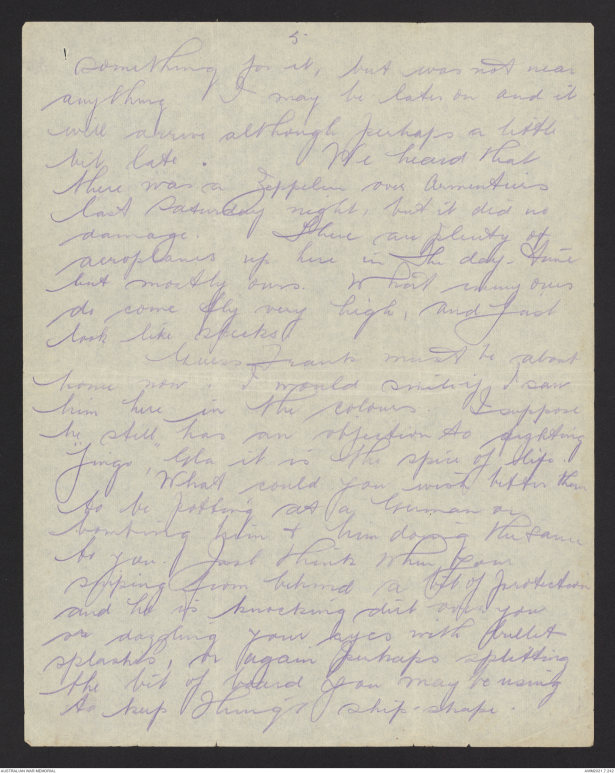 5
something for it, but was not near
anything I may be later on and it
will arrive although perhaps a little
bit late. We heard that
there was a Zeppelin over Armentiers
last Saturday night, but it did no
damage. There are plenty of
aeroplanes up here in the day-time
but mostly ours. What enemy ones
do come fly very high, and just
look like specks.
Guess Frank must be about
home now. I would smile if I saw
him here in the colours. I suppose
he "still" has an objection to fighting
"Jingo", it is the spice of life.
What could you wish better than
to be potting at a German or
bombing him & him doing the same
to you. Just think when your
sniping from behind a bit of protection
and he is knocking dirt over you
or dazzling your eyes with bullet
splashes, or again perhaps splitting
the bit of board you may be using
to keep things ship-shape.
AUSTRALIAN WAR MEMORIAL